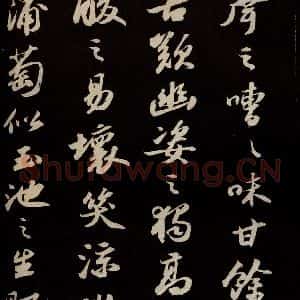 聲之嘈々味甘餘
苦歎幽姿之獨高
酸之易壞笑涼州
蒲萄似玉池之生肥
Shufawang.CN